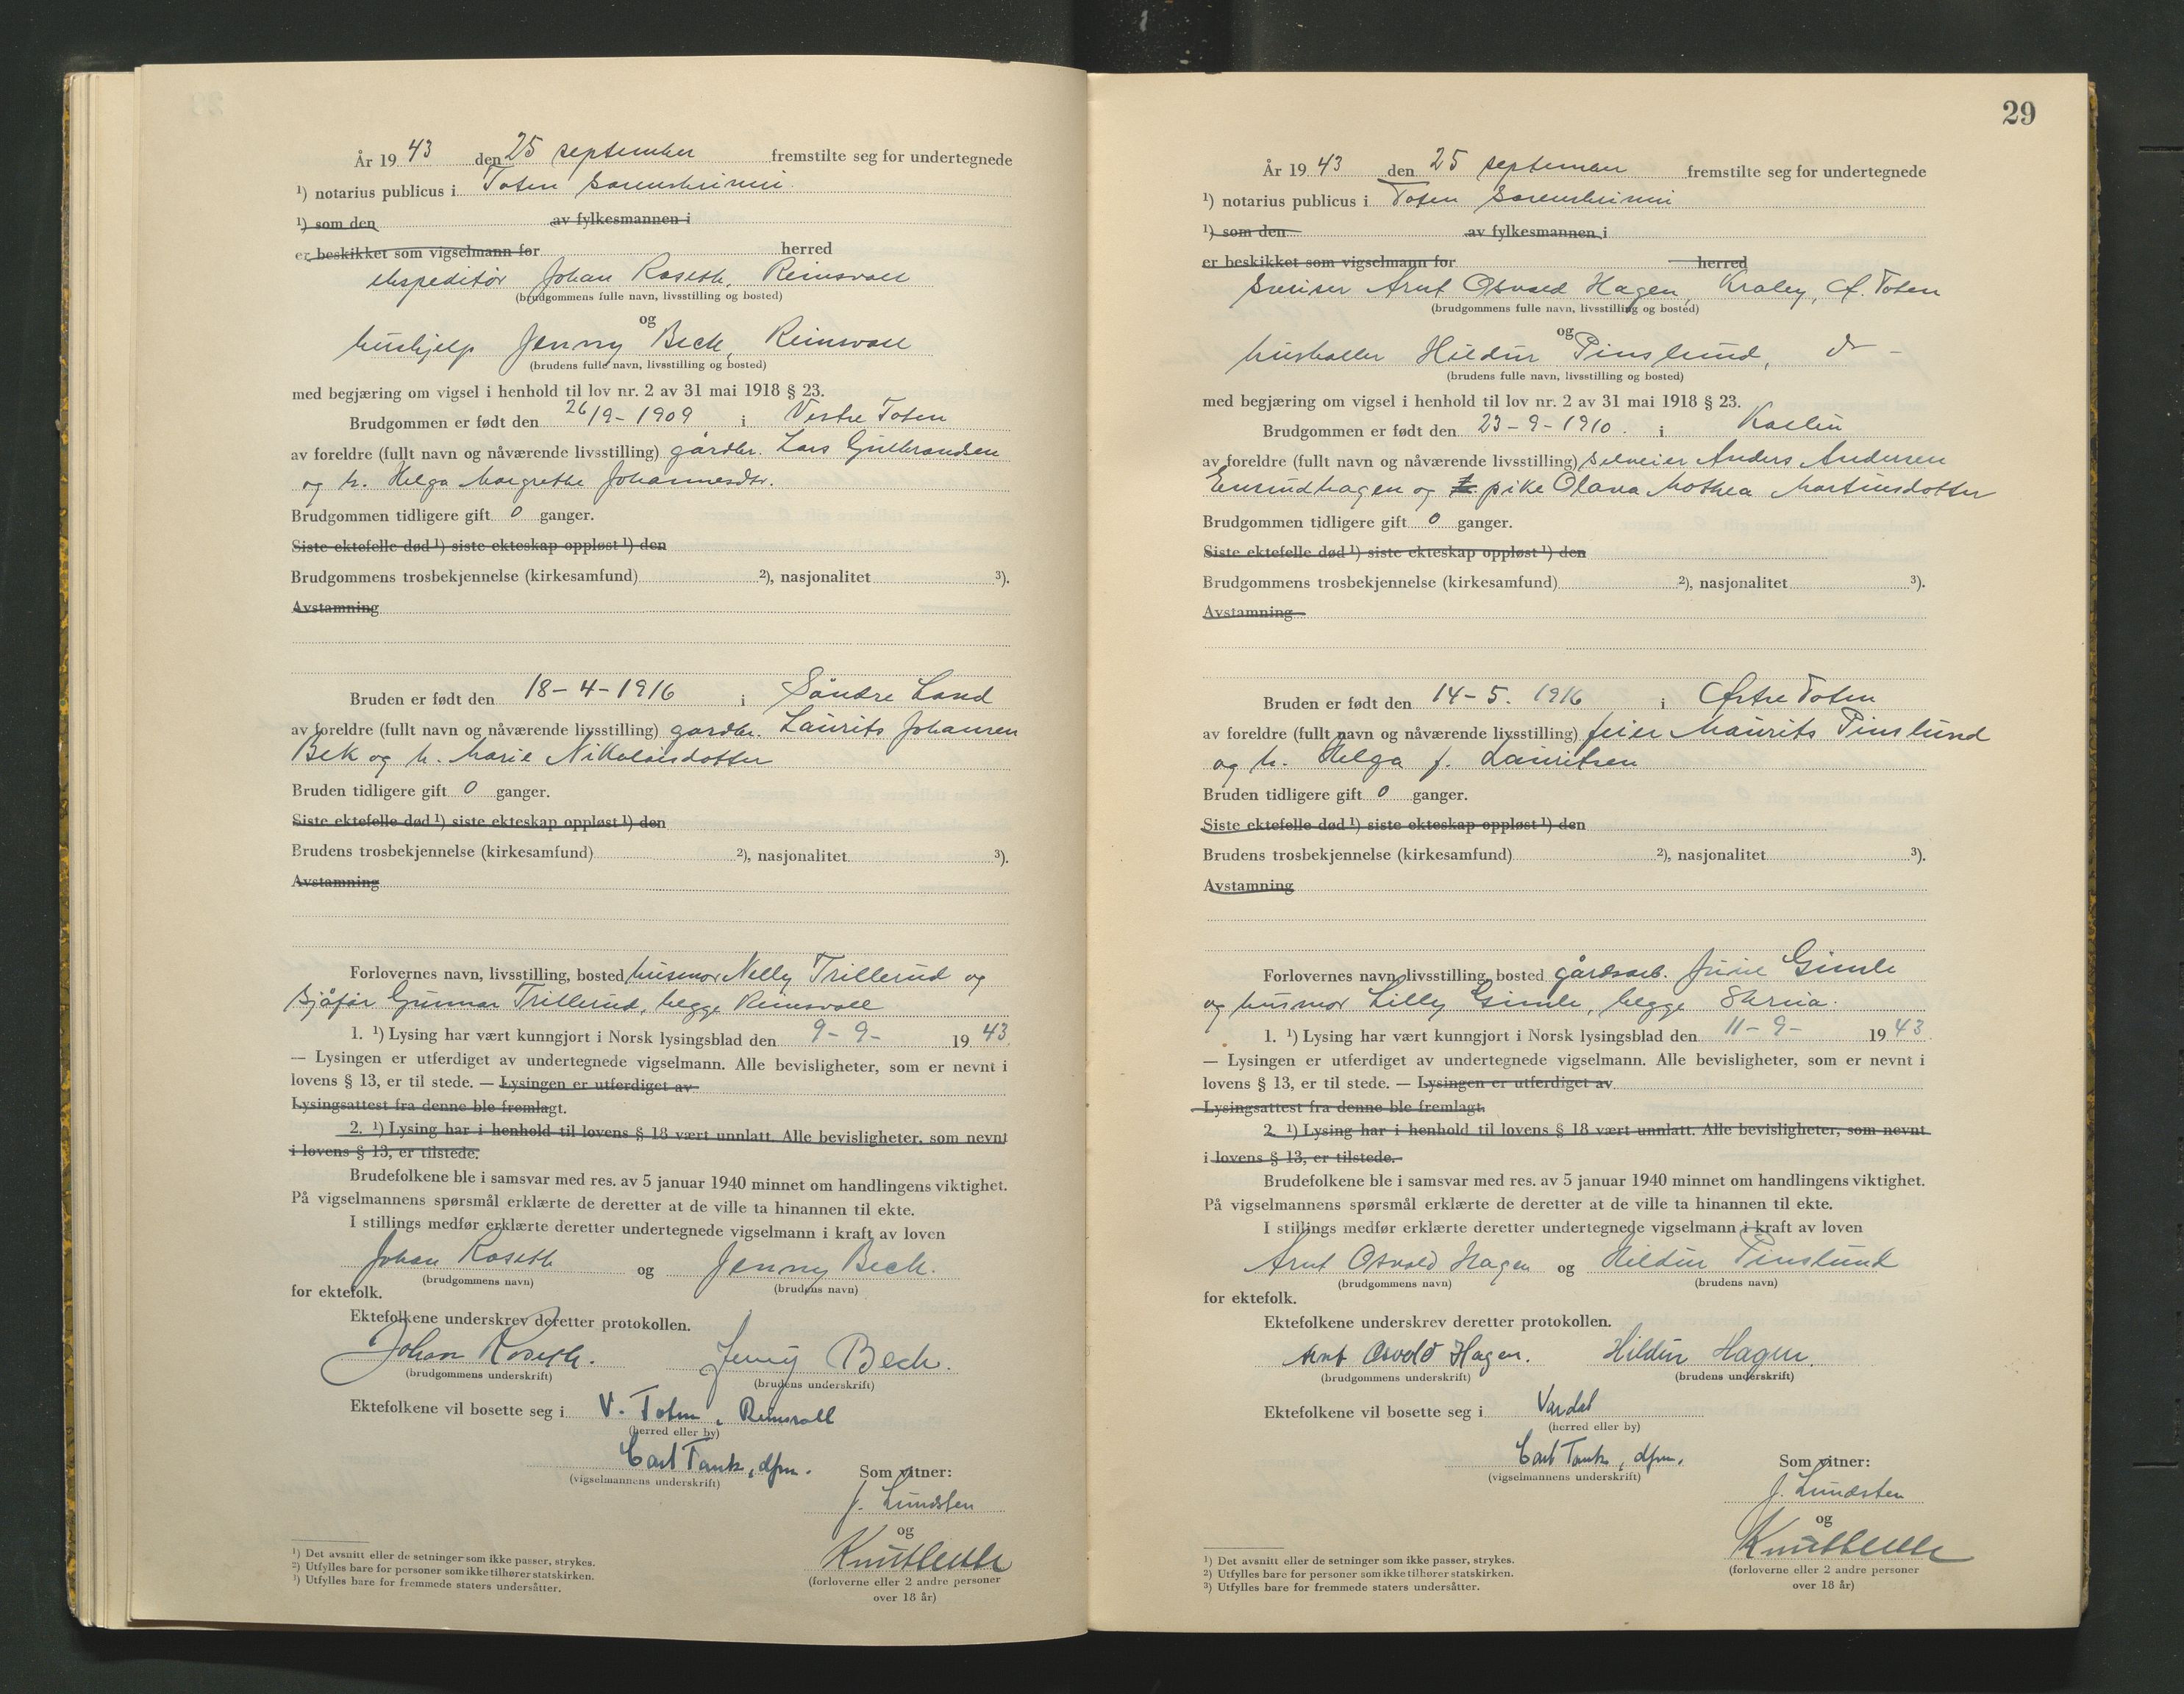 År 19 43 den 25 september fremstilte seg for undertegnede
¹) notarius publicus i Toten sorenskriveri
¹) som den av fylkesmannen i
er beskikket som vigselmann for herred
ekspeditør Johan Roseth, Reinsvoll
(brudgommens fulle navn, livsstilling og bosted)
og
hushjelp Jenny Beck, Reinsvoll
(brudens fulle navn, livsstilling og bosted)
med begjæring om vigsel i henhold til lov nr. 2 av 31 mai 1918 § 23.
Brudgommen er født den 26/9-1909 i Vestre Toten
av foreldre (fullt navn og nåværende livsstilling) gårdbr. Lars Gulbrandsen
og h. Helga Margrethe Johannesdtr.
Brudgommen tidligere gift 0 ganger.
Siste ektefelle død ¹) siste ekteskap oppløst ¹) den
Brudgommens trosbekjennelse (kirkesamfund) ²), nasjonalitet ³).
Avstamning
Bruden er født den 18-4-1916 i Søndre Land
av foreldre (fullt navn og nåværende livsstilling) gårdbr. Laurits Johansen
Bek og h. Marie Nikolaisdotter
Bruden tidligere gift 0 ganger.
Siste ektefelle død ¹) siste ekteskap oppløst ¹) den
Brudens trosbekjennelse (kirkesamfund) ²), nasjonalitet ³).
Avstamning
Forlovernes navn, livsstilling, bosted husmor Nelly Trillerud og
sjåfør Gunnar Trillerud, begge Reinsvoll
1. ¹) Lysing har vært kunngjort i Norsk lysingsblad den 9-9- 19 43.
— Lysingen er utferdiget av undertegnede vigselmann. Alle bevisligheter, som er nevnt i
lovens § 13, er til stede. — Lysingen er utferdiget av
Lysingsattest fra denne ble fremlagt.
2. ¹) Lysing har i henhold til lovens § 18 vært unnlatt. Alle bevisligheter, som nevnt
i lovens § 13, er tilstede.
Brudefolkene ble i samsvar med res. av 5 januar 1940 minnet om handlingens viktighet.
På vigselmannens spørsmål erklærte de deretter at de ville ta hinannen til ekte.
I stillings medfør erklærte deretter undertegnede vigselmann i kraft av loven
Johan Roseth og Jenny Beck.
(brudgommens navn) (brudens navn)
for ektefolk.
Ektefolkene underskrev deretter protokollen.
Johan Roseth. Jenny Beck.
(brudgommens underskrift) (brudens underskrift)
Ektefolkene vil bosette seg i V. Toten, Reinsvoll
(herred eller by)
Carl Tank, dfm.
(vigselmannens underskrift)
Som vitner:
J. Lundsten
og
(forloverne eller 2 andre personer
over 18 år)
¹) Det avsnitt eller de setninger som ikke passer, strykes.
²) Utfylles bare for personer som ikke tilhører statskirken.
³) Utfylles bare for fremmede staters undersåtter.
29
År 19 43 den 25 september fremstilte seg for undertegnede
¹) notarius publicus i Toten sorenskriveri
¹) som den av fylkesmannen i
er beskikket som vigselmann for herred
sveiser Arnt Osvald Hagen, Kraby, Ø. Toten
(brudgommens fulle navn, livsstilling og bosted)
og
husholder Hildur Pinslund, do -
(brudens fulle navn, livsstilling og bosted)
med begjæring om vigsel i henhold til lov nr. 2 av 31 mai 1918 § 23.
Brudgommen er født den 23-9-1910. i Kolbu
av foreldre (fullt navn og nåværende livsstilling) selveier Anders Andersen
og pike Olava Mathea Martinsdotter
Brudgommen tidligere gift 0 ganger.
Siste ektefelle død ¹) siste ekteskap oppløst ¹) den
Brudgommens trosbekjennelse (kirkesamfund) ²), nasjonalitet ³).
Avstamning
Bruden er født den 14-5. 1916 i Østre Toten
av foreldre (fullt navn og nåværende livsstilling) feier Maurits Pinslund
og h. Helga f. Lauritsen
Bruden tidligere gift 0 ganger.
Siste ektefelle død ¹) siste ekteskap oppløst ¹) den
Brudens trosbekjennelse (kirkesamfund) ²), nasjonalitet ³).
Avstamning
Forlovernes navn, livsstilling, bosted gårdsarb. Gimle
og husmor Lilly Gimle, begge Skreia.
1. ¹) Lysing har vært kunngjort i Norsk lysingsblad den 11-9- 19 43
— Lysingen er utferdiget av undertegnede vigselmann. Alle bevisligheter, som er nevnt i
lovens § 13, er til stede. — Lysingen er utferdiget av
Lysingsattest fra denne ble fremlagt.
2. ¹) Lysing har i henhold til lovens § 18 vært unnlatt. Alle bevisligheter, som nevnt
i lovens § 13, er tilstede.
Brudefolkene ble i samsvar med res. av 5 januar 1940 minnet om handlingens viktighet.
På vigselmannens spørsmål erklærte de deretter at de ville ta hinannen til ekte.
I stillings medfør erklærte deretter undertegnede vigselmann i kraft av loven
Arnt Osvald Hagen og Hildur Pinslund
(brudgommens navn) (brudens navn)
for ektefolk.
Ektefolkene underskrev deretter protokollen.
Arnt Osvold Hagen. Hildur Hagen.
(brudgommens underskrift) (brudens underskrift)
Ektefolkene vil bosette seg i Vardal
(herred eller by)
Carl Tank, dfm.
(vigselmannens underskrift)
Som vitner:
J. Lundsten
og
(forloverne eller 2 andre personer
over 18 år)
¹) Det avsnitt eller de setninger som ikke passer, strykes.
²) Utfylles bare for personer som ikke tilhører statskirken.
³) Utfylles bare for fremmede staters undersåtter.